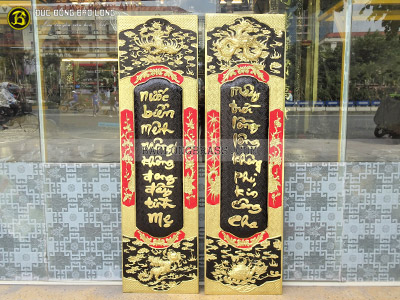 ĐÚC ĐỒNG BẢO LONG
Nước
biển
mênh
mông
không
đong
đầy
tình
Mẹ
Mây
trời
lồng
lộng
không
Phủ
kín
công
Cha